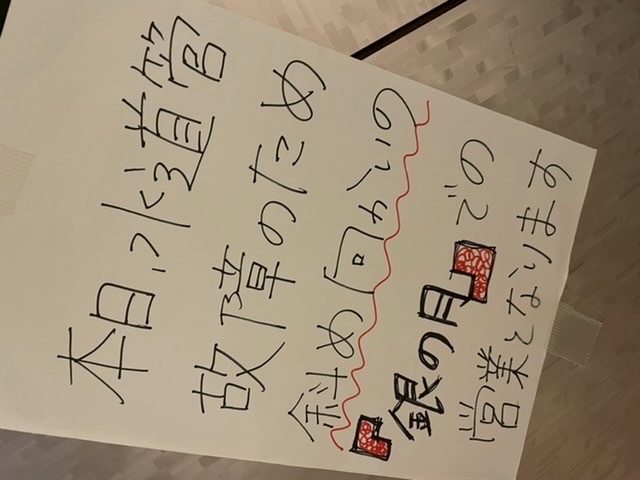 本日、水道管
故障のため
斜め向かいの
「銀の月」での
営業となります